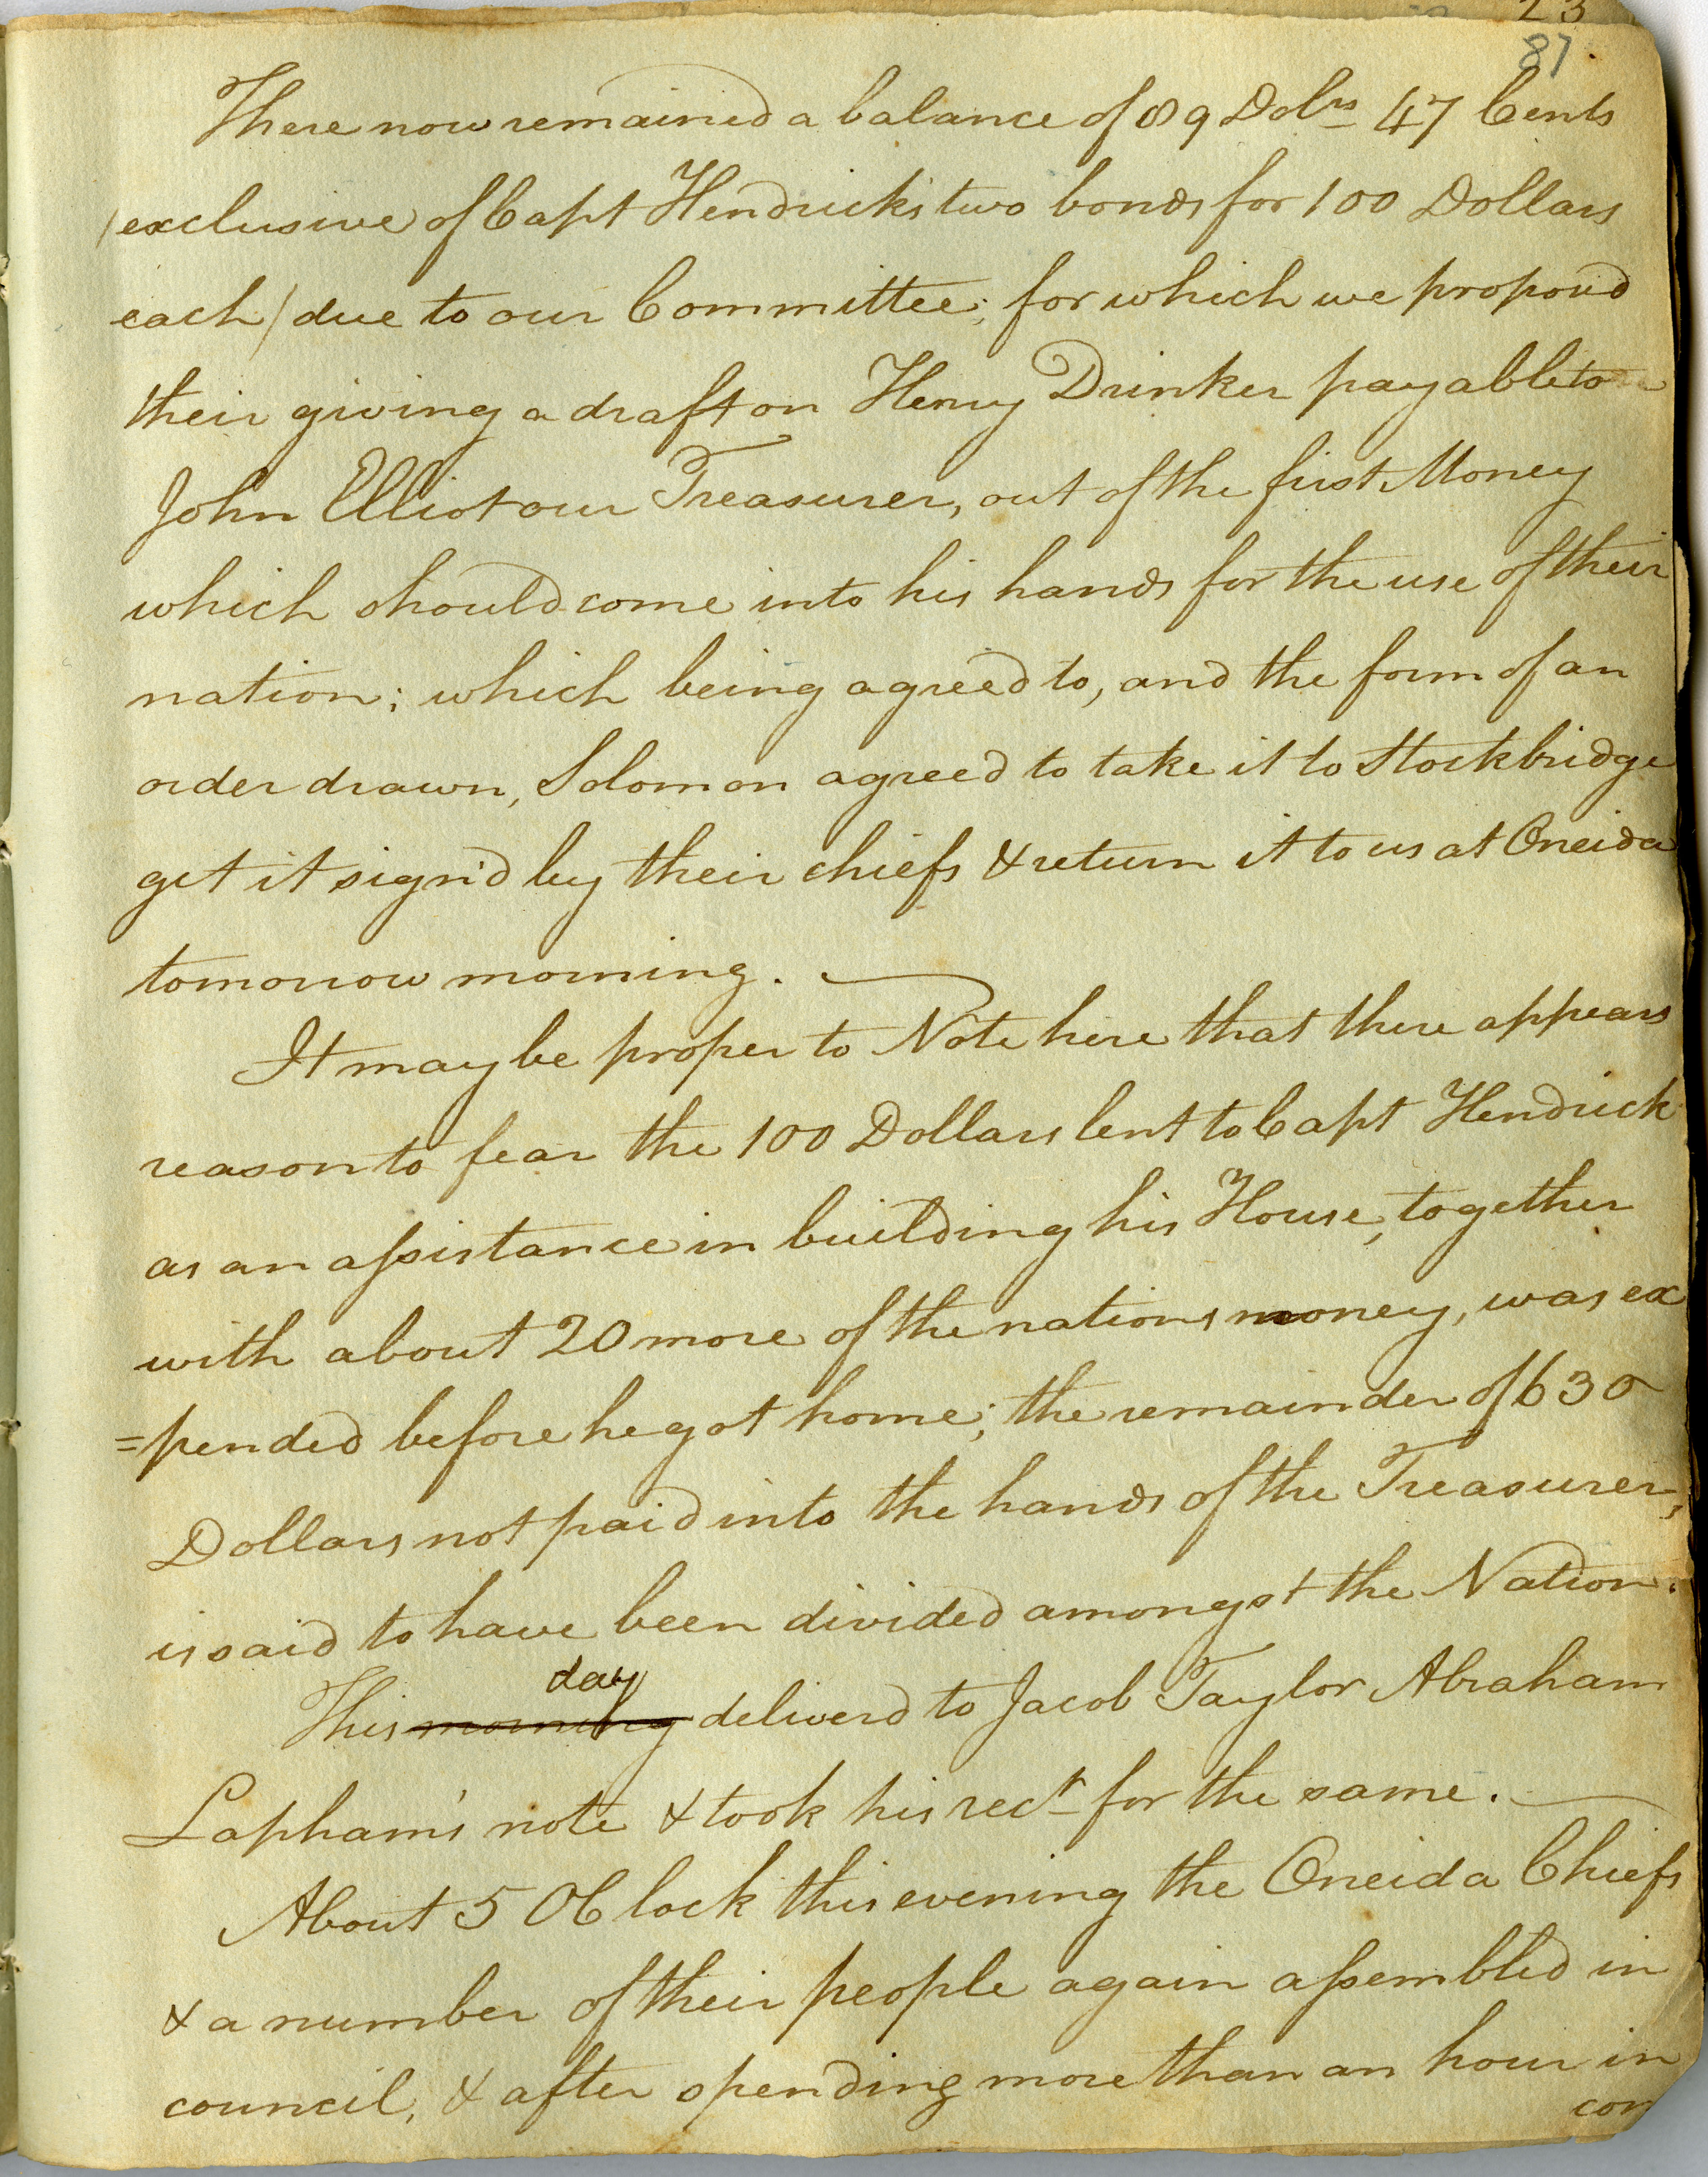 23
87
There now remained a balance of 89 Dolrs 47 Cents
(exclusive of Capt Hendricks two bonds for 100 Dollars
each) due to our Committee; for which we propos'd
their giving a draft on Henry Drinker payable to
John Elliot our Treasurer, out of the first Money
which should come into his hands for the use of their
nation; which being agreed to, and the form of an
order drawn, Solomon agreed to take it to Stockbridge
get it sign'd by their chiefs & return it to us at Oneida
tomorrow morning.
It may be proper to Note here that there appears
reason to fear the 100 Dollars lent to Capt Hendrick
as an assistance in building his House, together
with about 20 more of the nations money, was ex
=pended before he got home; the remainder of 630
Dollars not paid into the hands of the Treasurer,
is said to have been divided amongst the Nation.
day
This morning deliverd to Jacob Taylor Abraham
Lapham's note & took his rect for the same.
About 5 OClock this evening the Oneida Chiefs
& a number of their people again assembled in
council, & after spending more than an hour in
con